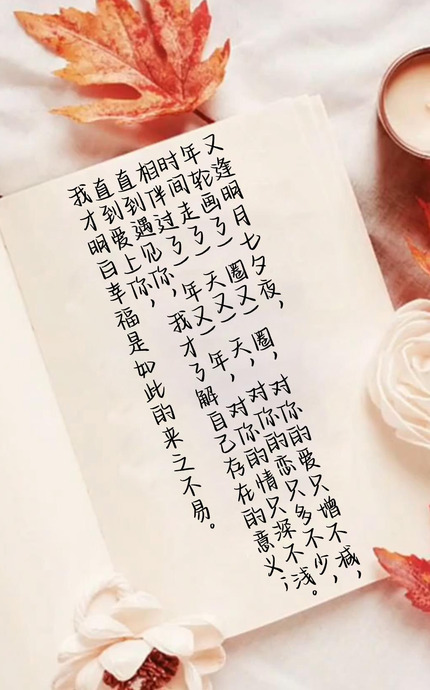 又逢明月七夕夜,
年轮画了一圈又一圈,对你的爱只增不减,
时间走了一天又一天,对你的恋只多不少,
相伴过了一年又一年,对你的情只深不浅。
直到遇见你,我才了解自己存在的意义;
直到爱上你,
我才明白幸福是如此的来之不易。